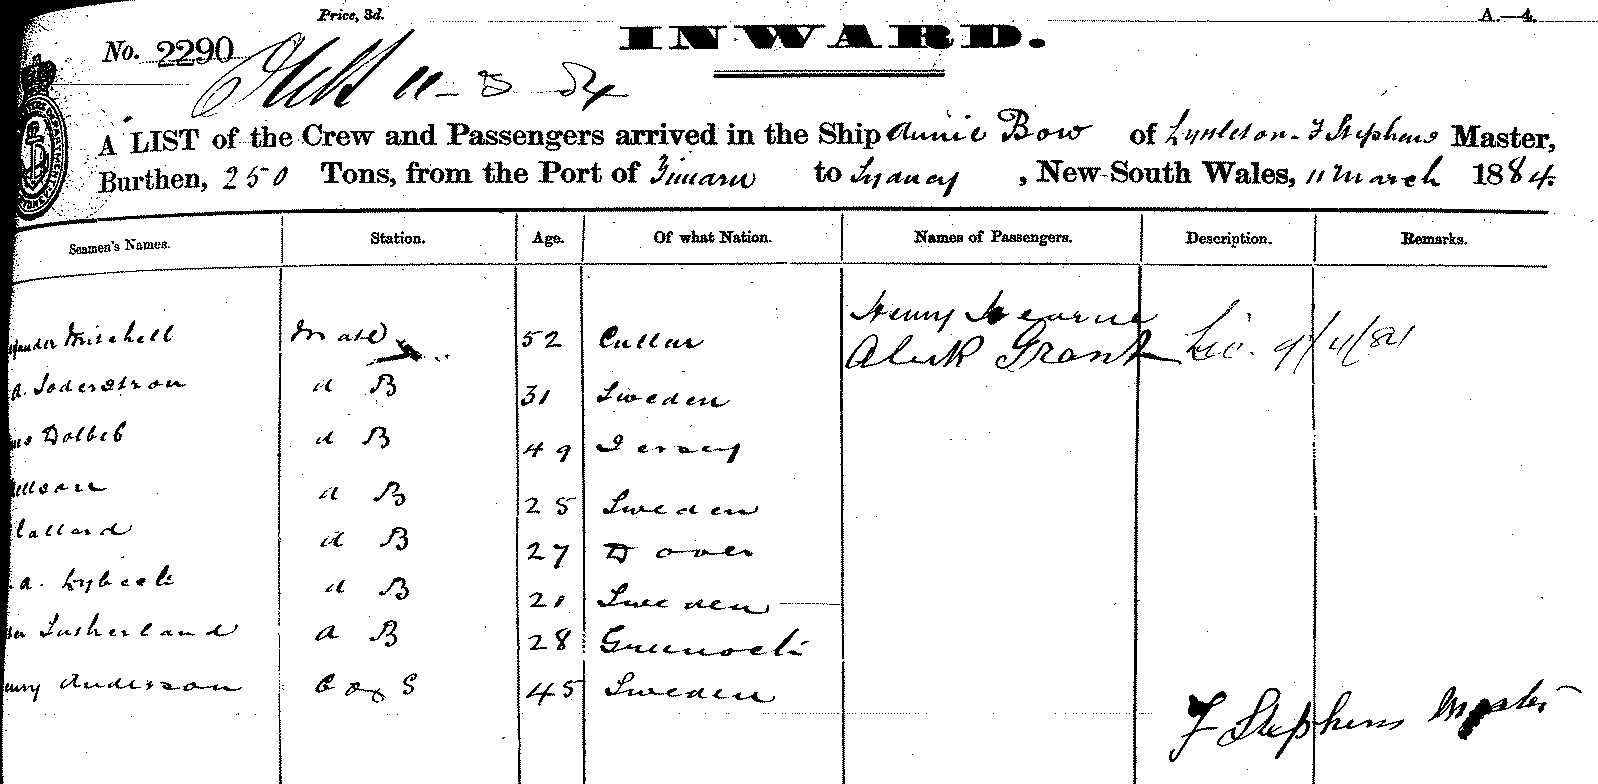 Price, 3d.
A.—4.
No. 2290
INWARD.
11-3-84
A LIST of the Crew and Passengers arrived in the Ship Annie Bow of Lyttleton - F Stephens Master,
Burthen, 250 Tons, from the Port of Timaru to Sydney, New South Wales, 11 March 1884.
Seamen's Names. Station. Age. Of what Nation. Names of Passengers. Description. Remarks.
Henry Hearne
ander Mitchell Mate 52 Cullen Grant
a. Soderstron a B 31 Sweden
Dolbeb a B 49 Jersey
a B 25 Sweden
allard a B 27 Dover
a. Lybeck a B 21 Sweden
Sutherland a B 28 Greenock
Anderson C & S 45 Sweden
F Stephens Master